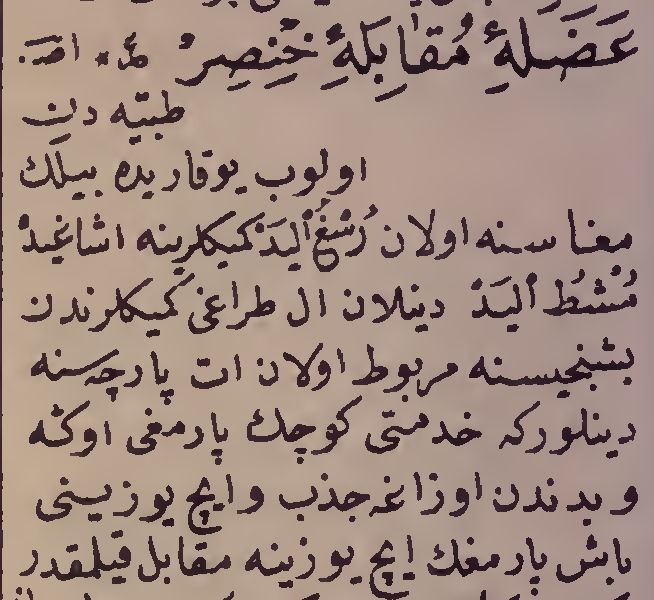 عَضَلَهِٔ مُقَابِلَهِٔ خُنِصِرْ
طبيّه دن
اولوب يوقاريده بيلك
معنا سنه اولان رُسْغُ اَليَدْ كميكلرينه اشاغيدن
مُشْطُ اَليَدْ دينلان ال طراغى كميكلرندن
بشنجيسنه مربوط اولان ات پارچه سنه
دينلوركه خدمتى كوچك پارمغى اوكنه
و بدندن اوزاغه جذب و ايچ يوزينى
باش پارمغك ايچ يوزينه مقابل قيلمقدر